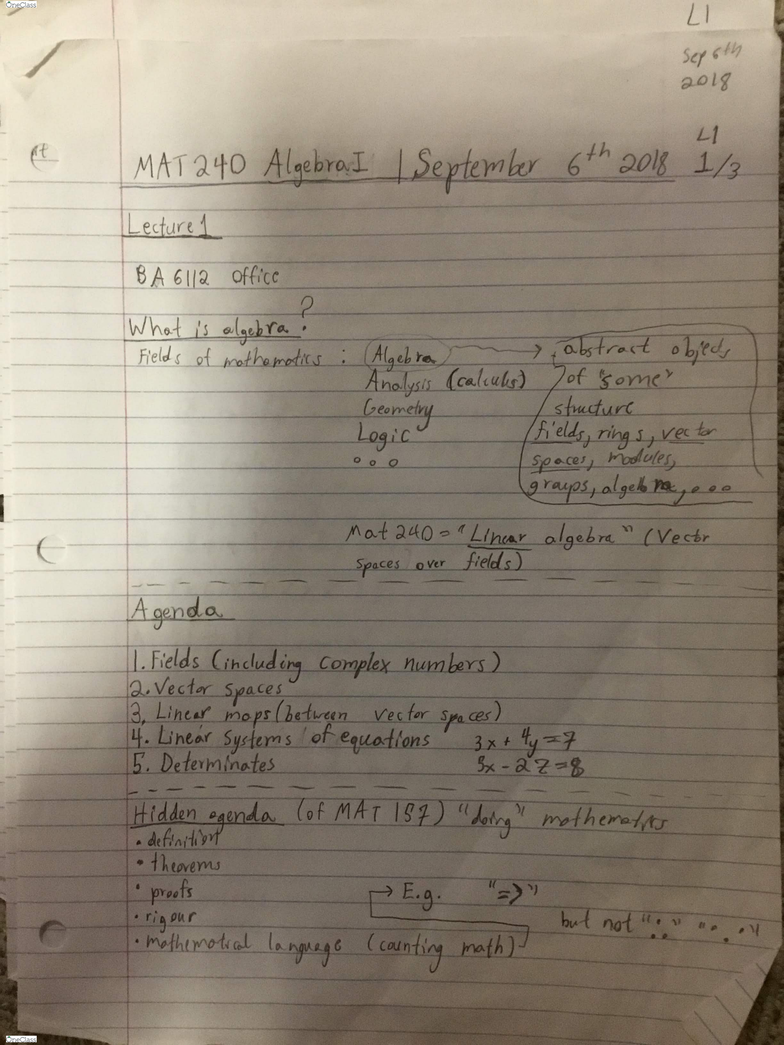 OneClass
L1
Sep 6th
2018
L1
MAT 240 Algebra I | September 6th 2018 1/3
Lecture 1
BA 6112 Office
What is algebra?
Fields of mathematics : Algebra → abstract objects
Analysis (calculus) of "some"
Geometry structure
Logic fields, rings, vector
ooo spaces, modules,
groups, algebra, ooo
Mat 240 = "Linear algebra" (Vector
spaces over fields)
Agenda
1. Fields (including complex numbers)
2. Vector spaces
3. Linear maps (between vector spaces)
4. Linear Systems of equations 3x + 4y = 7
5. Determinates 5x - 2z = 8
Hidden agenda (of MAT 157) "doing" mathematics
• definition
• theorems
• proofs → E.g. "=>"
• rigour but not "∵" "∴"
• mathematical language (counting math)
OneClass